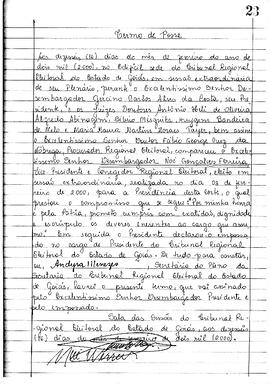 23
Termo de Posse
Aos dezesseis (16) dias do mês de janeiro do ano de
dois mil (2000), no edifício sede do Tribunal Regional
Eleitoral do Estado de Goiás, em sessão extraordinária
de seu Plenário, perante o Excelentíssimo Senhor De-
sembargador Gercino Carlos Alves da Costa, seu Presi-
dente, e os juízes Doutores Antônio Heli de Oliveira,
Alfredo Abinagem,
de Melo e Maria Laura Martins Moraes Tayer, bem assim
o Excelentíssimo Senhor Doutor Fábio George Cruz da
Nóbrega, Procurador Regional Eleitoral, compareceu o Excelen-
tíssimo Senhor Desembargador Noé Gonçalves Ferreira
Presidente e Corregedor Regional Eleitoral, eleito em
sessão extraordinária, realizada no dia de ja-
neiro de 2000, para a Presidência desta Corte, o qual
prestou o compromisso que se segue: "Por minha honra
e pela Pátria, prometo cumprir com exatidão, dignidade
e escrúpulo os deveres inerentes ao cargo que assu-
mo". Em seguida o Presidente declarou-o empossado
no cargo de Presidente do Tribunal Regional
Eleitoral do Estado de Goiás. De tudo para constar,
eu, Secretária do Pleno da
Secretaria do Tribunal Regional Eleitoral do Estado
de Goiás, lavrei o presente termo, que vai assinado
pelo Excelentíssimo Senhor Desembargador Presidente e
pelo empossado.
Sala das Sessões do Tribunal Re-
gional Eleitoral do Estado de Goiás, aos dezesseis
(16) dias do mês de janeiro de dois mil (2000).